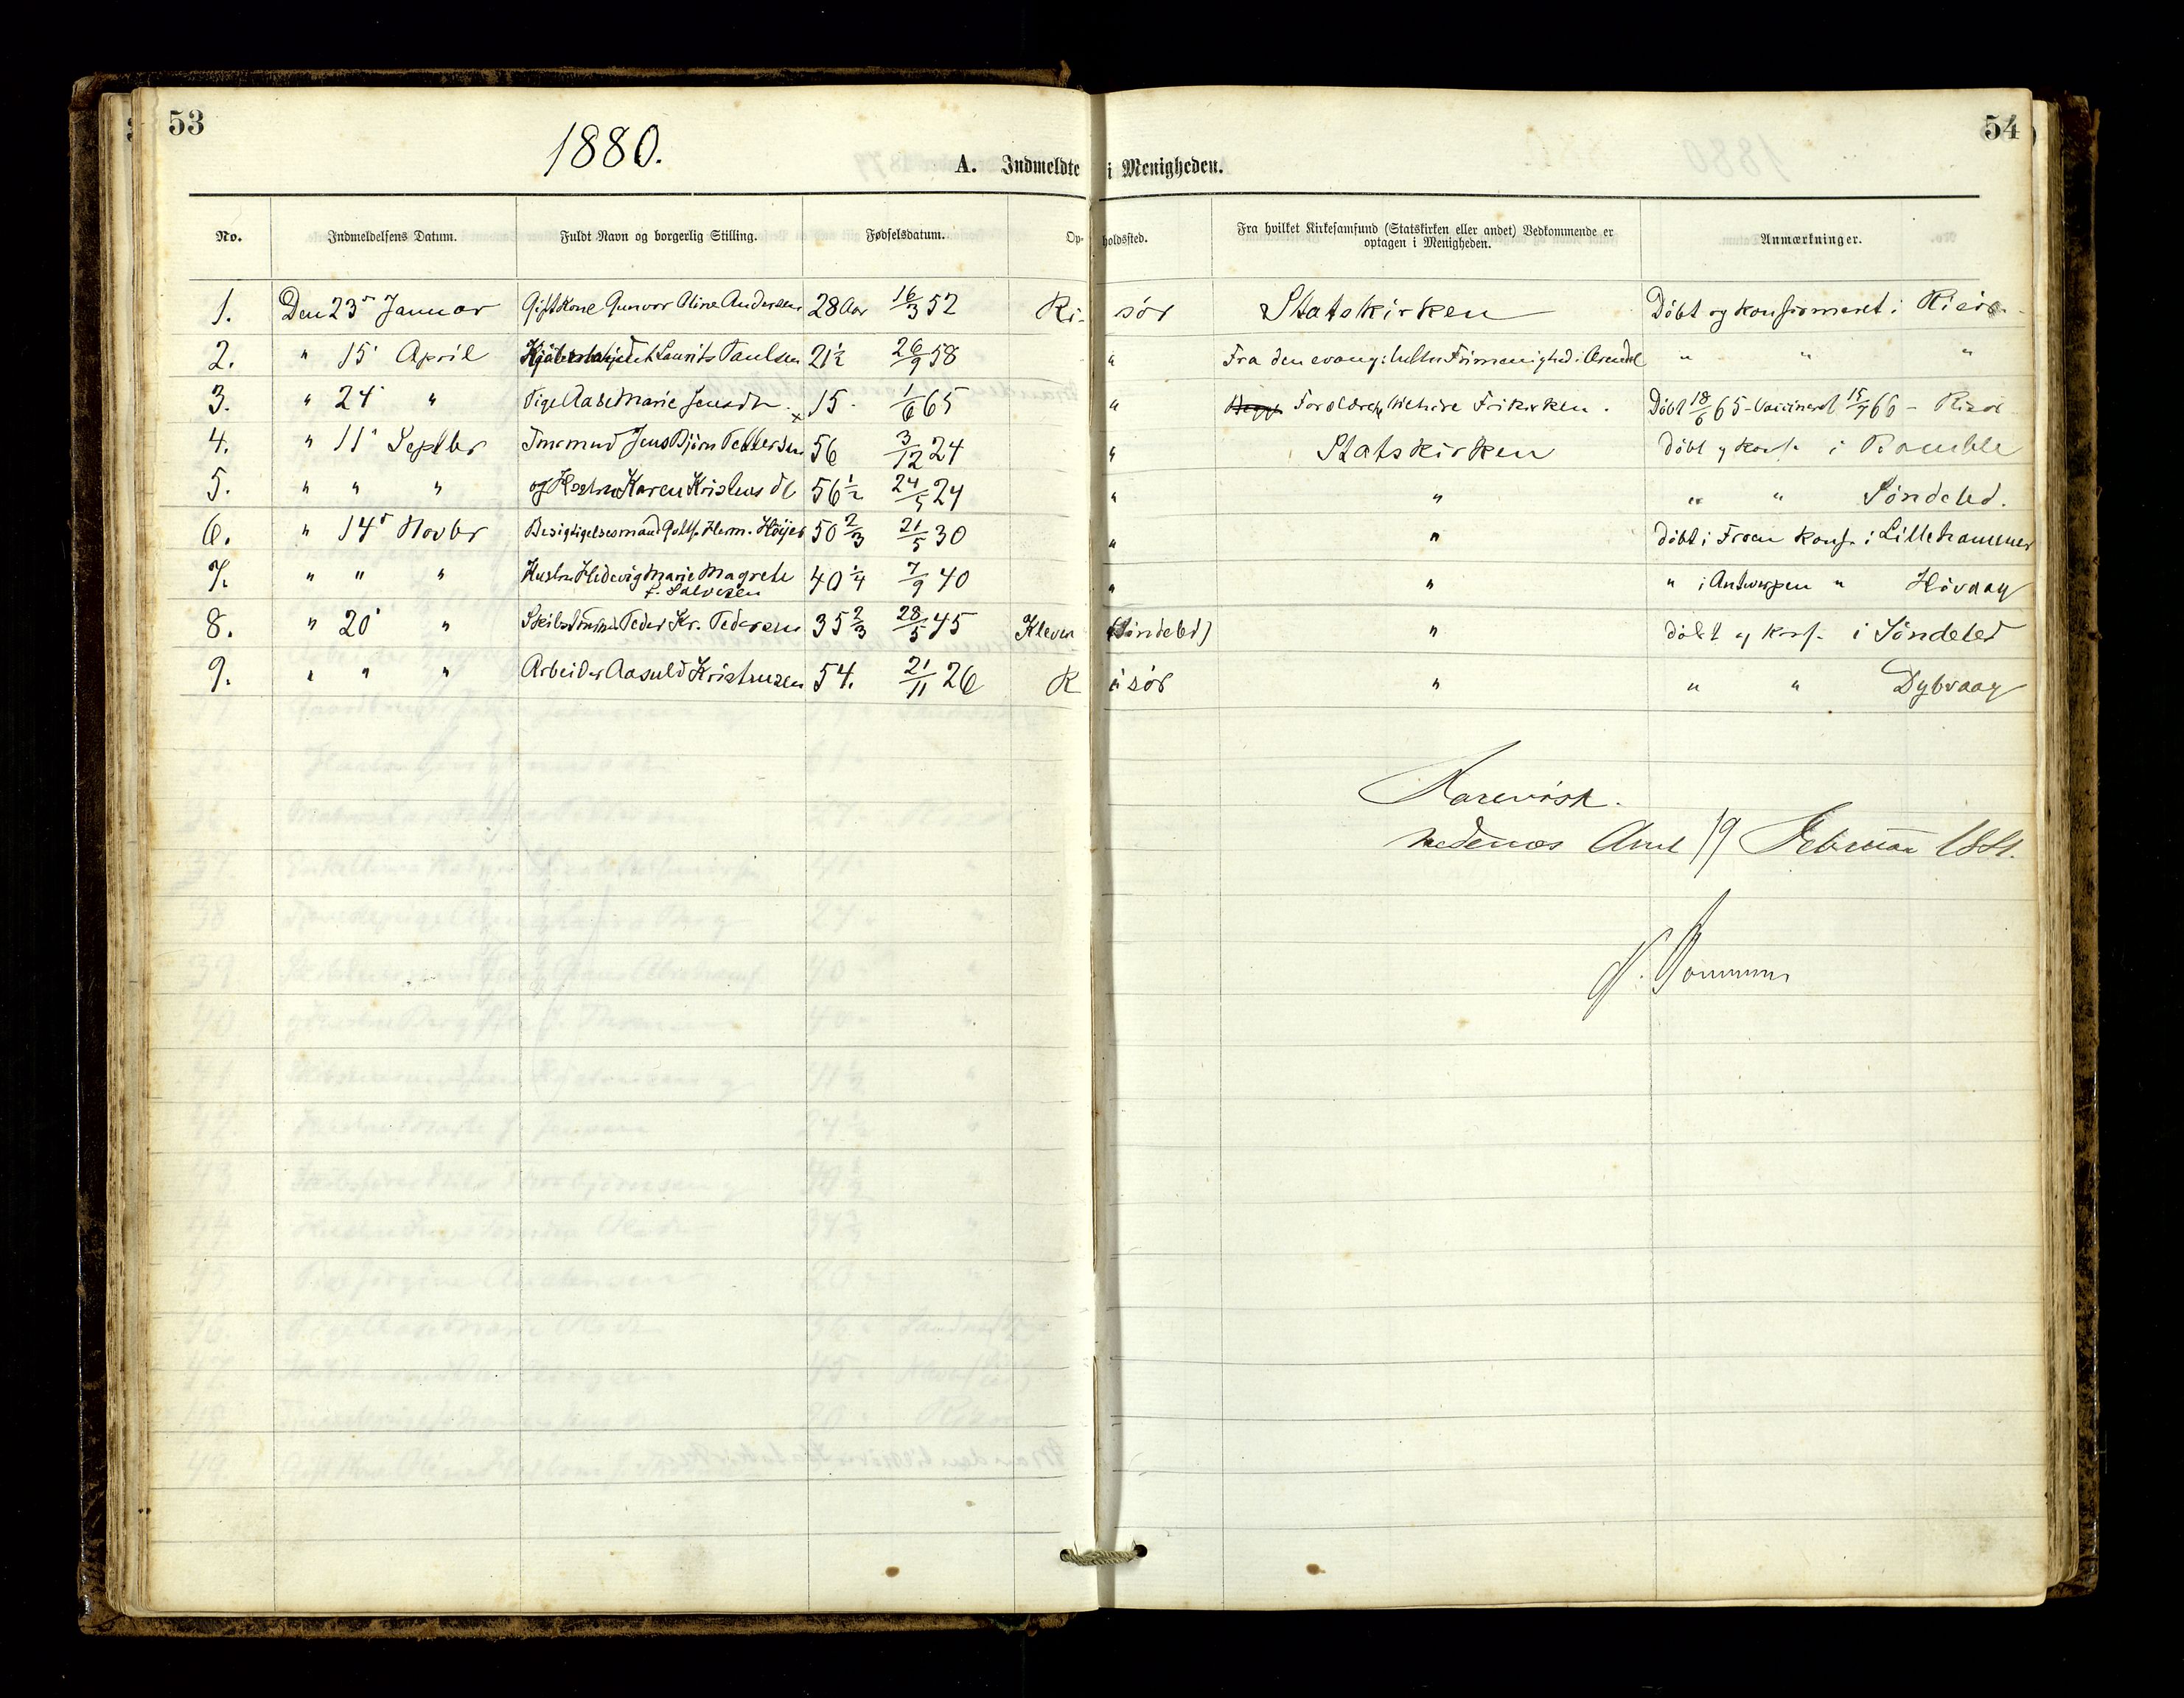 53
54
1880.
A. Indmeldte i Menigheden.
No. Indmeldelsens Datum. Fuldt Navn og borgerlig Stilling. Fødselsdatum. Opholdssted. Fra hvilket Kirkesamfund (Statskirken eller andet) Vedkommende er optagen i Menigheden. Anmærkninger.
1. Den 23' Januar Gift Kone Gunvor Aline Andersen 28 Aar 16/3 52 Risør Statskirken Döbt og Konfirmeret i Risör
2. " 15' April Laurits Paulsen 21½ 26/9 58 " Fra den evang: luthr Frimenighed i Arendal " " "
3. " 24' " Pige Aase Marie Jensdtr 15 1/6 65 " Forældre tilhöre Frikirken. Döbt 18/6 65 - Vaccineret 15/9 66 - Risör
4. " 11' Septbr Tmrmnd Jens Björn Pettersen 56 3/12 24 " Statskirken döbt og Konf. i Bamble
5. " " " og Hustru Karen Kristensdt 56½ 24/5 24 " " " " Söndeled.
6. " 14' Novbr Besigtigelsesmand Gotlf. Herm. Höijer 50 2/3 21/5 30 " " döbt i Froen Konf. i Lillehammer
7. " " " Hustru Hedevig Marie Magrete f. Salvesen 40¼ 7/9 40 " " " i Antwerpen " Hövaag
8. " 20' " Skibstömmrm Peder Kr. Pedersen 35 2/3 28/5 45 Kleven (Söndeled) " döbt og Konf. i Söndeled
9. " " " Arbeider Aasuld Kristensen 54. 21/11 26 Risör " " " Dybvaag
Nedenæs Amt 19 Februar 1881.